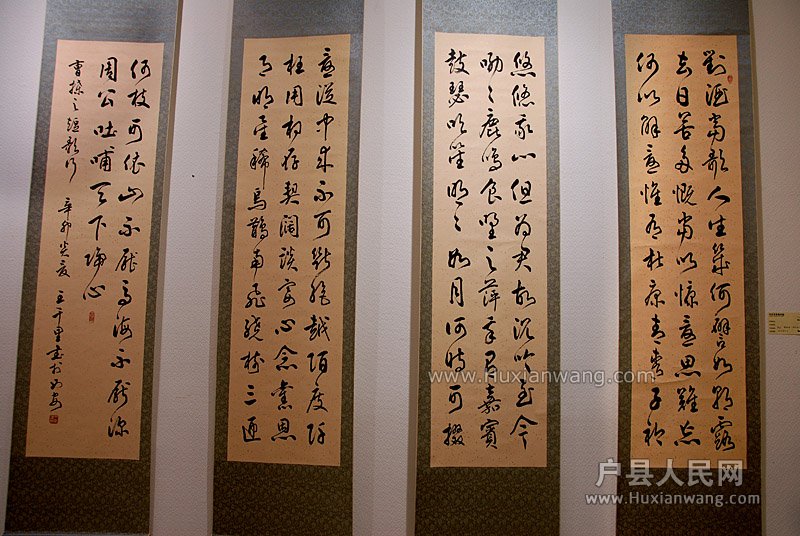 對酒當歌人生幾何譬如朝露
去日苦多慨當以慷憂思難忘
何以解憂惟有杜康青青子衿
悠悠我心但为君故沉吟至今
呦々鹿鳴食野之苹我有嘉賓
鼓瑟吹笙明々如月何時可掇
憂從中來不可斷絕越陌度阡
枉用相存契闊談宴心念舊恩
月明星稀烏鵲南飛繞樹三匝
何枝可依山不厭高海不厭深
周公吐哺天下歸心
曹操之短歌行 辛卯炎夏 王千里書於西安
www.Huxianwang.com
www.Huxianwang.com
户县人民网
www.Huxianwang.com